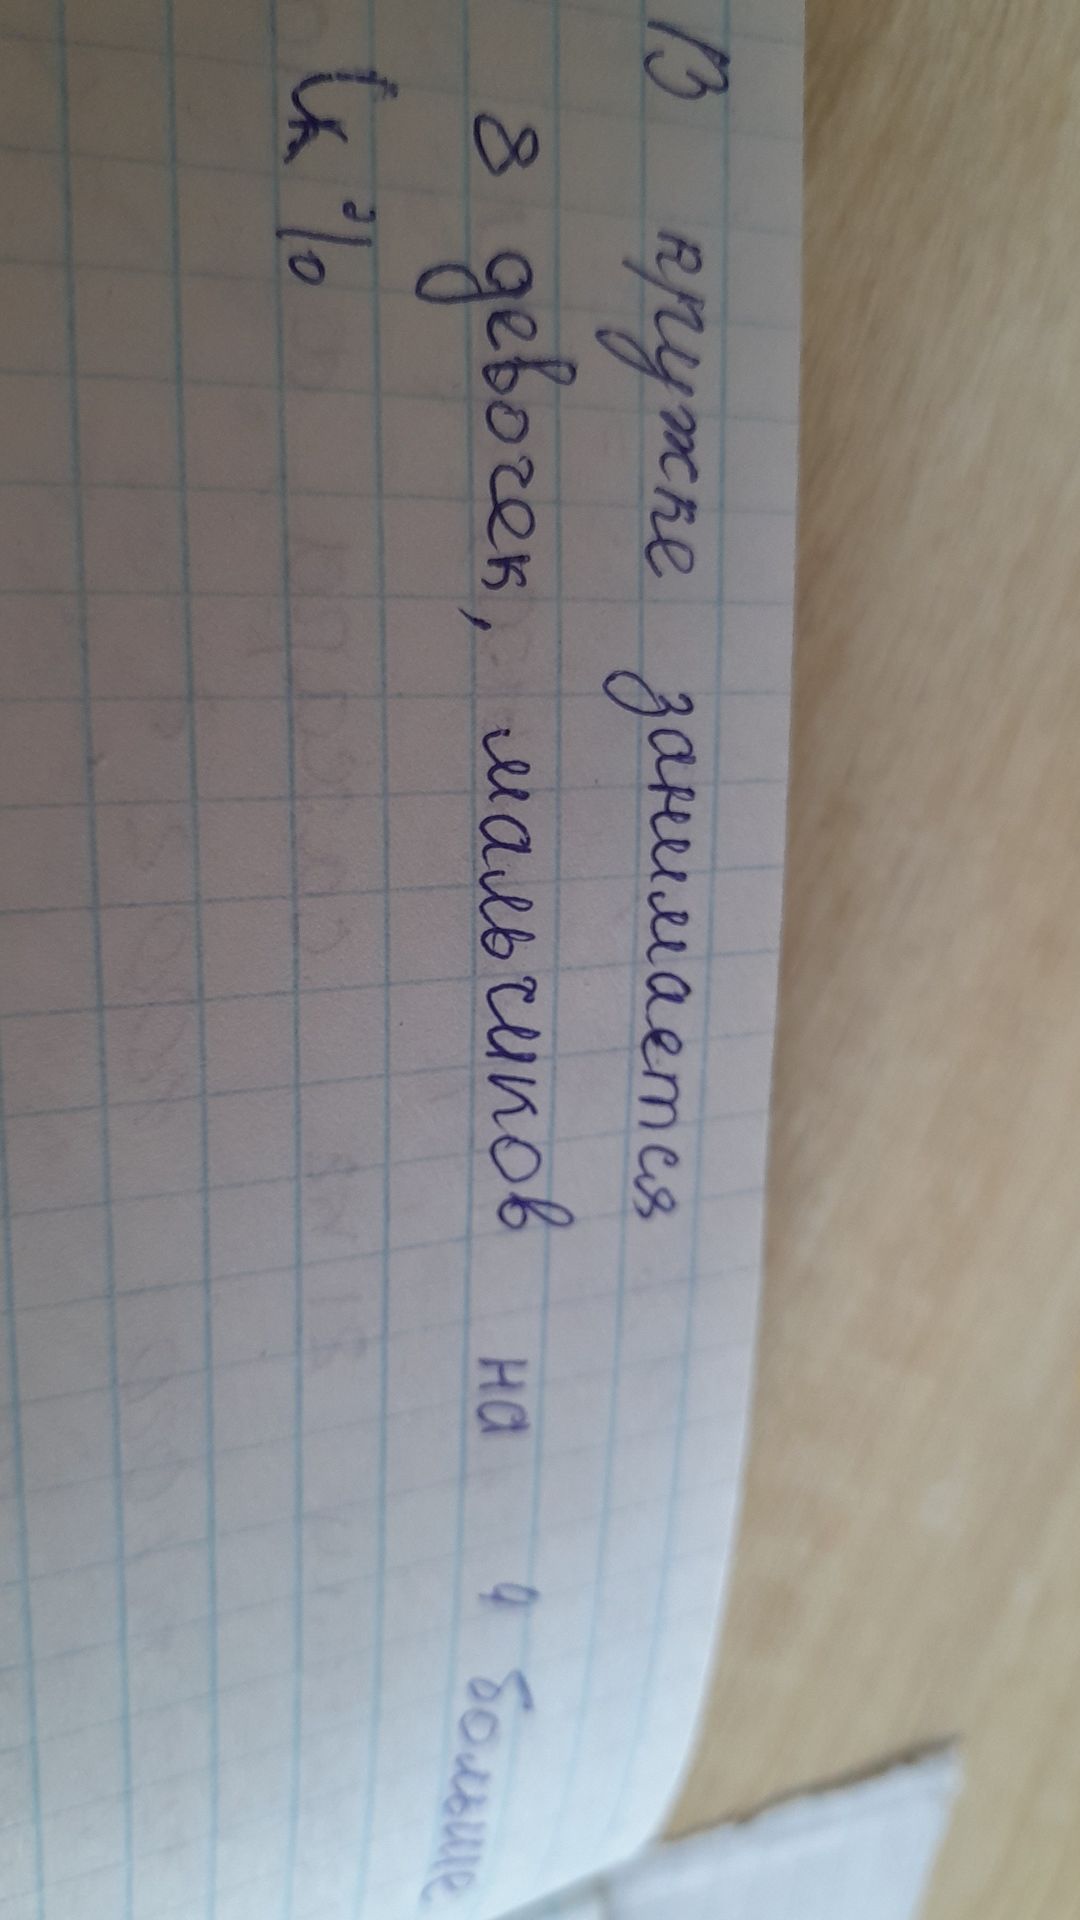 В кружке занимается
8 девочек, мальчиков на 4 больше